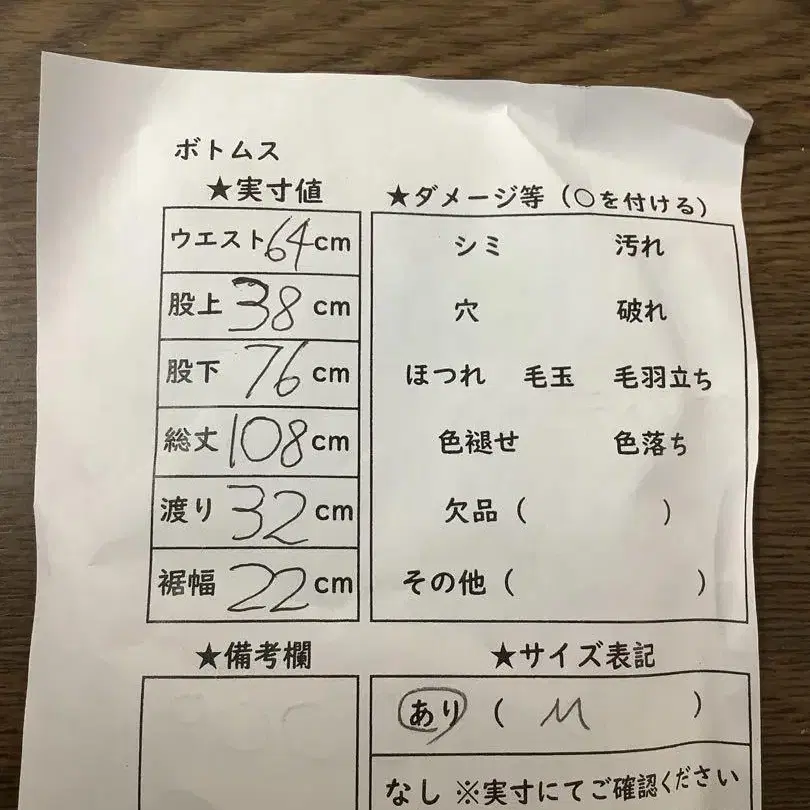 ボトムス
★実寸値
ウエスト64cm
股上 38 cm
股下 76 cm
総丈 108 cm
渡り 32 cm
裾幅 22 cm
★ダメージ等（○を付ける）
シミ 汚れ
穴 破れ
ほつれ 毛玉 毛羽立ち
色褪せ 色落ち
欠品（ ）
その他（ ）
★備考欄
★サイズ表記
あり（ M ）
なし ※実寸にてご確認ください